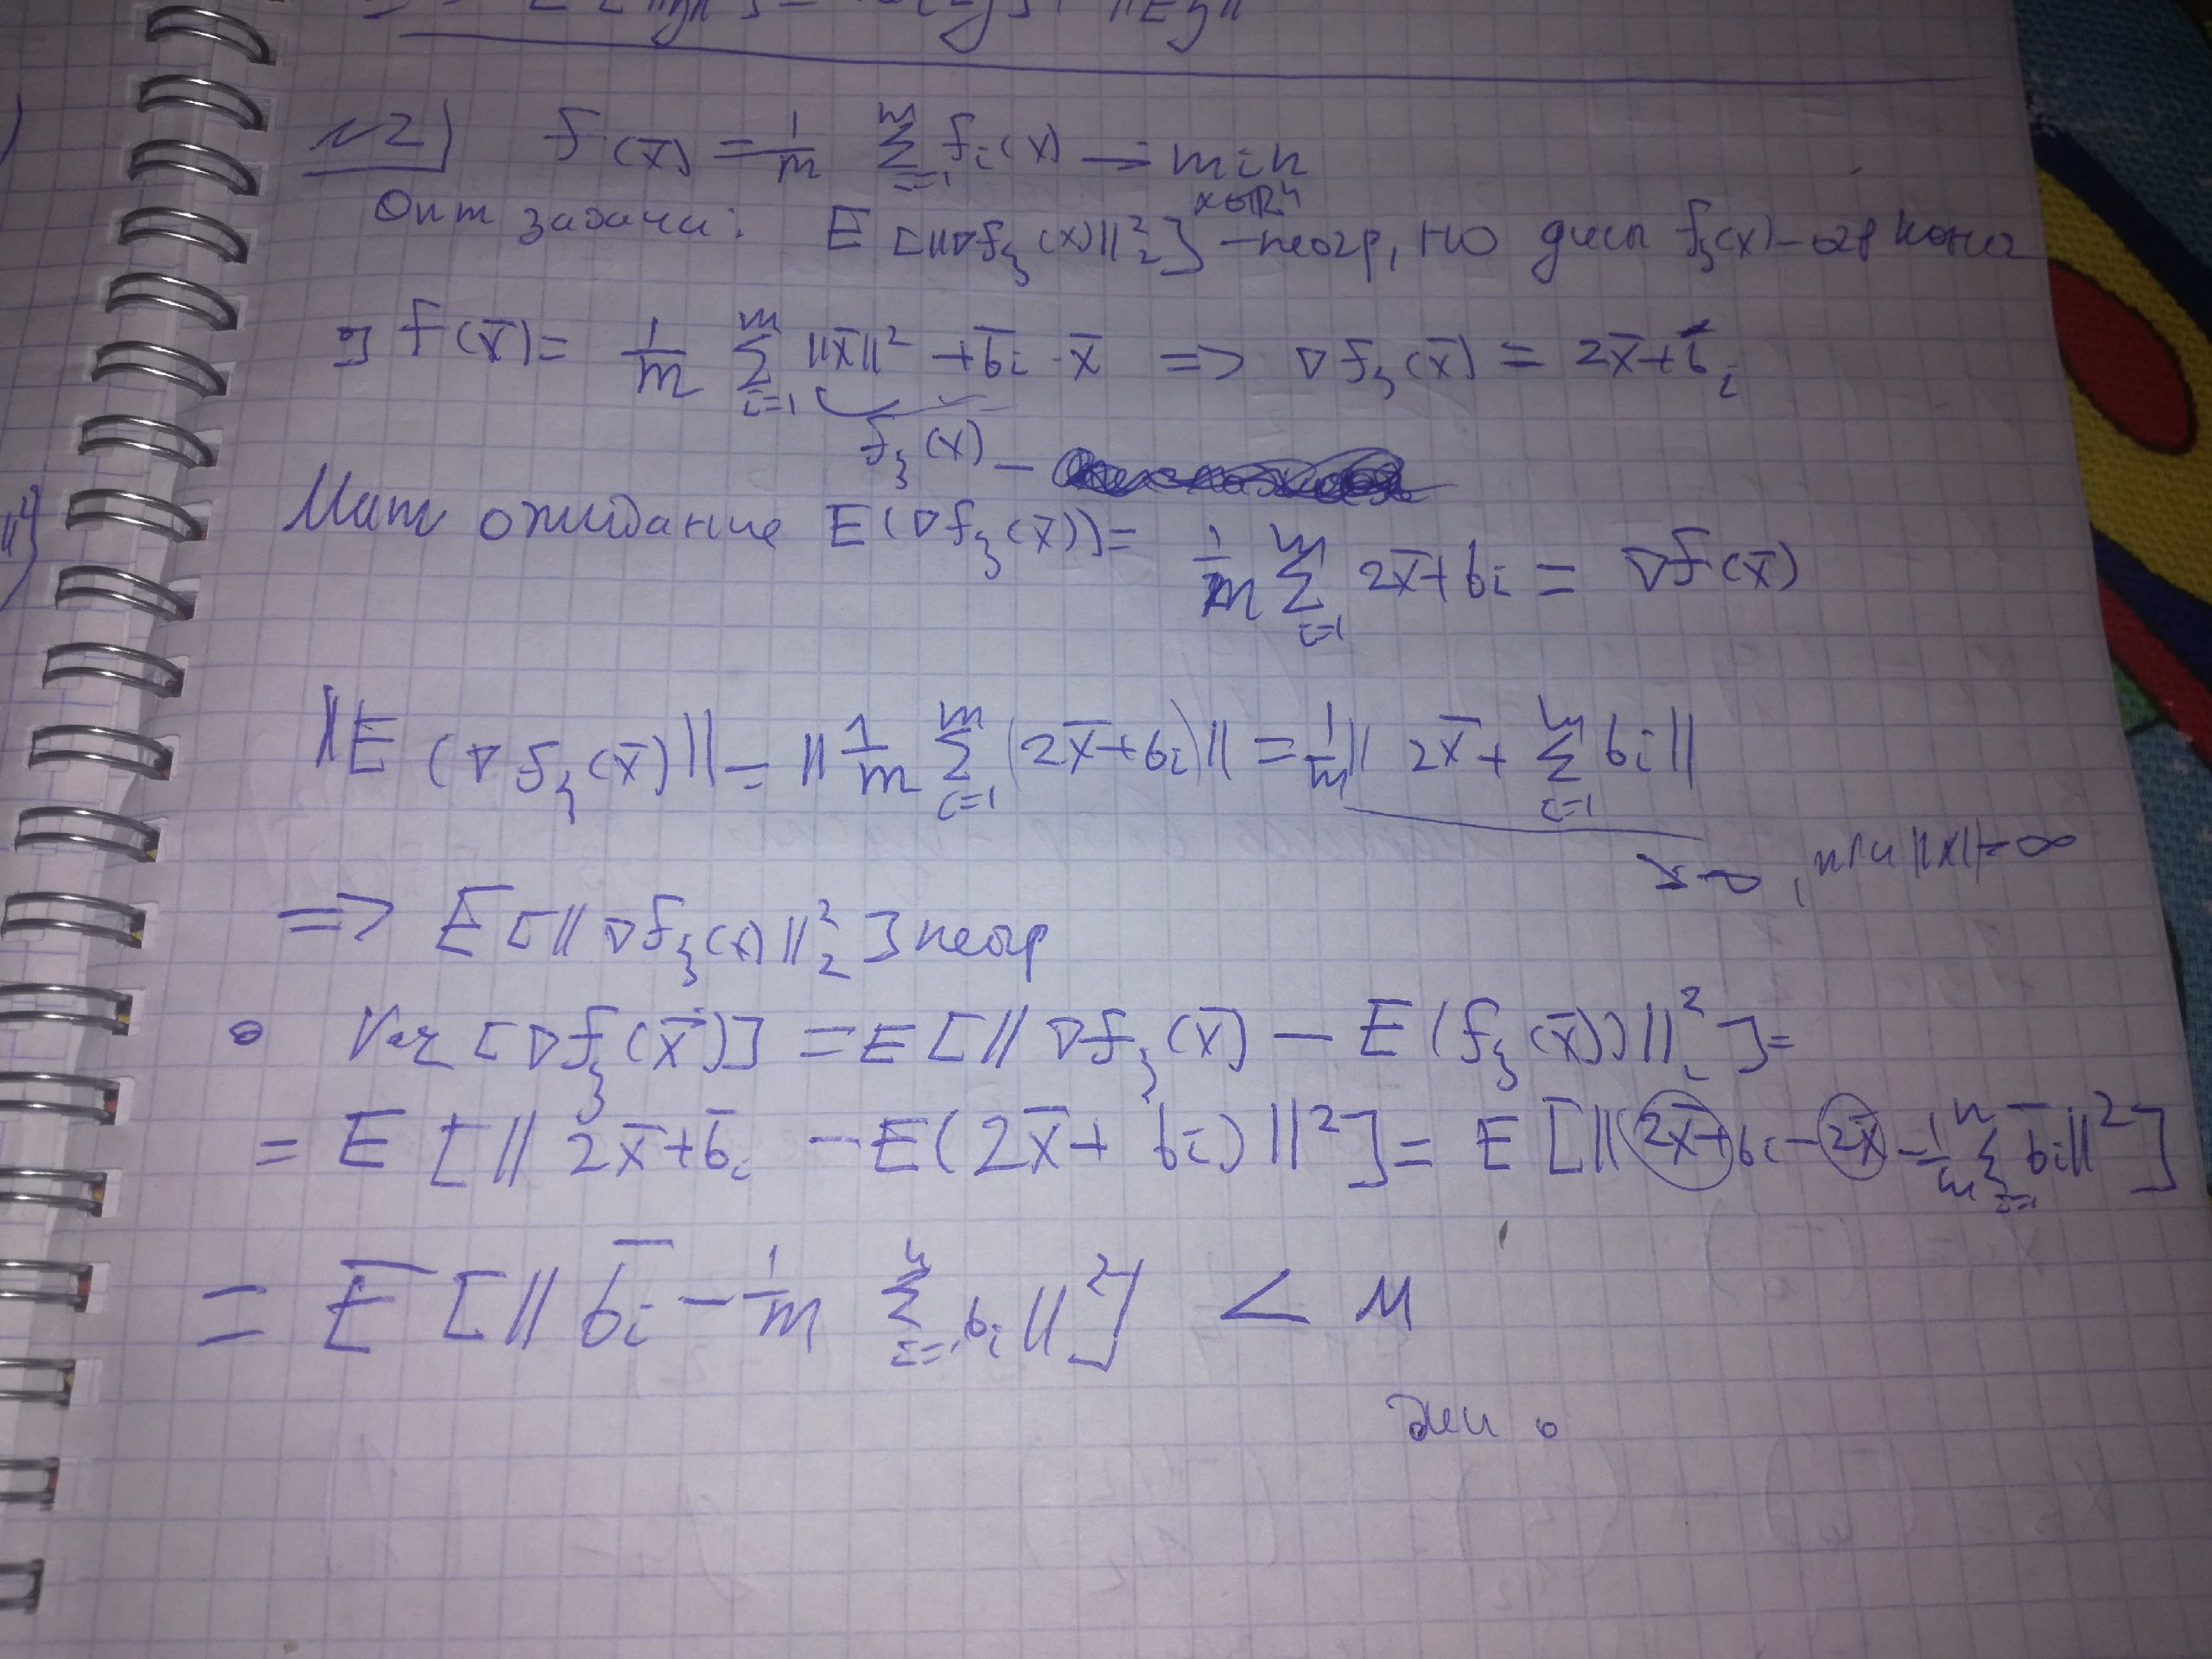 №2) f(x̄) = 1/m Σ_{i=1}^{m} f_i(x) → min_{x∈ℝⁿ}
Опт задачи: E[‖∇f_ξ(x)‖₂²] – неогр, но дисп f_ξ(x) –
] f(x̄) = 1/m Σ_{i=1}^{m} ‖x̄‖² + b̄_i · x̄ => ∇f_ξ(x̄) = 2x̄ + b̄_i
f_ξ(x) –
Мат ожидание E(∇f_ξ(x̄)) = 1/m Σ_{i=1}^{m} 2x̄ + b_i = ∇f(x̄)
‖E(∇f_ξ(x̄)‖ = ‖1/m Σ_{i=1}^{m} (2x̄ + b_i)‖ = 1/m ‖2x̄ + Σ_{i=1}^{m} b_i‖
→ ∞, при ‖x‖→∞
=> E[‖∇f_ξ(x)‖₂²] неогр
∘ Var[∇f_ξ(x̄)] = E[‖∇f_ξ(x̄) – E(f_ξ(x̄))‖²] =
= E[‖2x̄ + b̄_i – E(2x̄ + b_i)‖²] = E[‖2x̄ + b_i – 2x̄ – 1/m Σ_{i=1}^{m} b̄_i‖²]
= E[‖b̄_i – 1/m Σ_{i=1} b_i‖²] < M